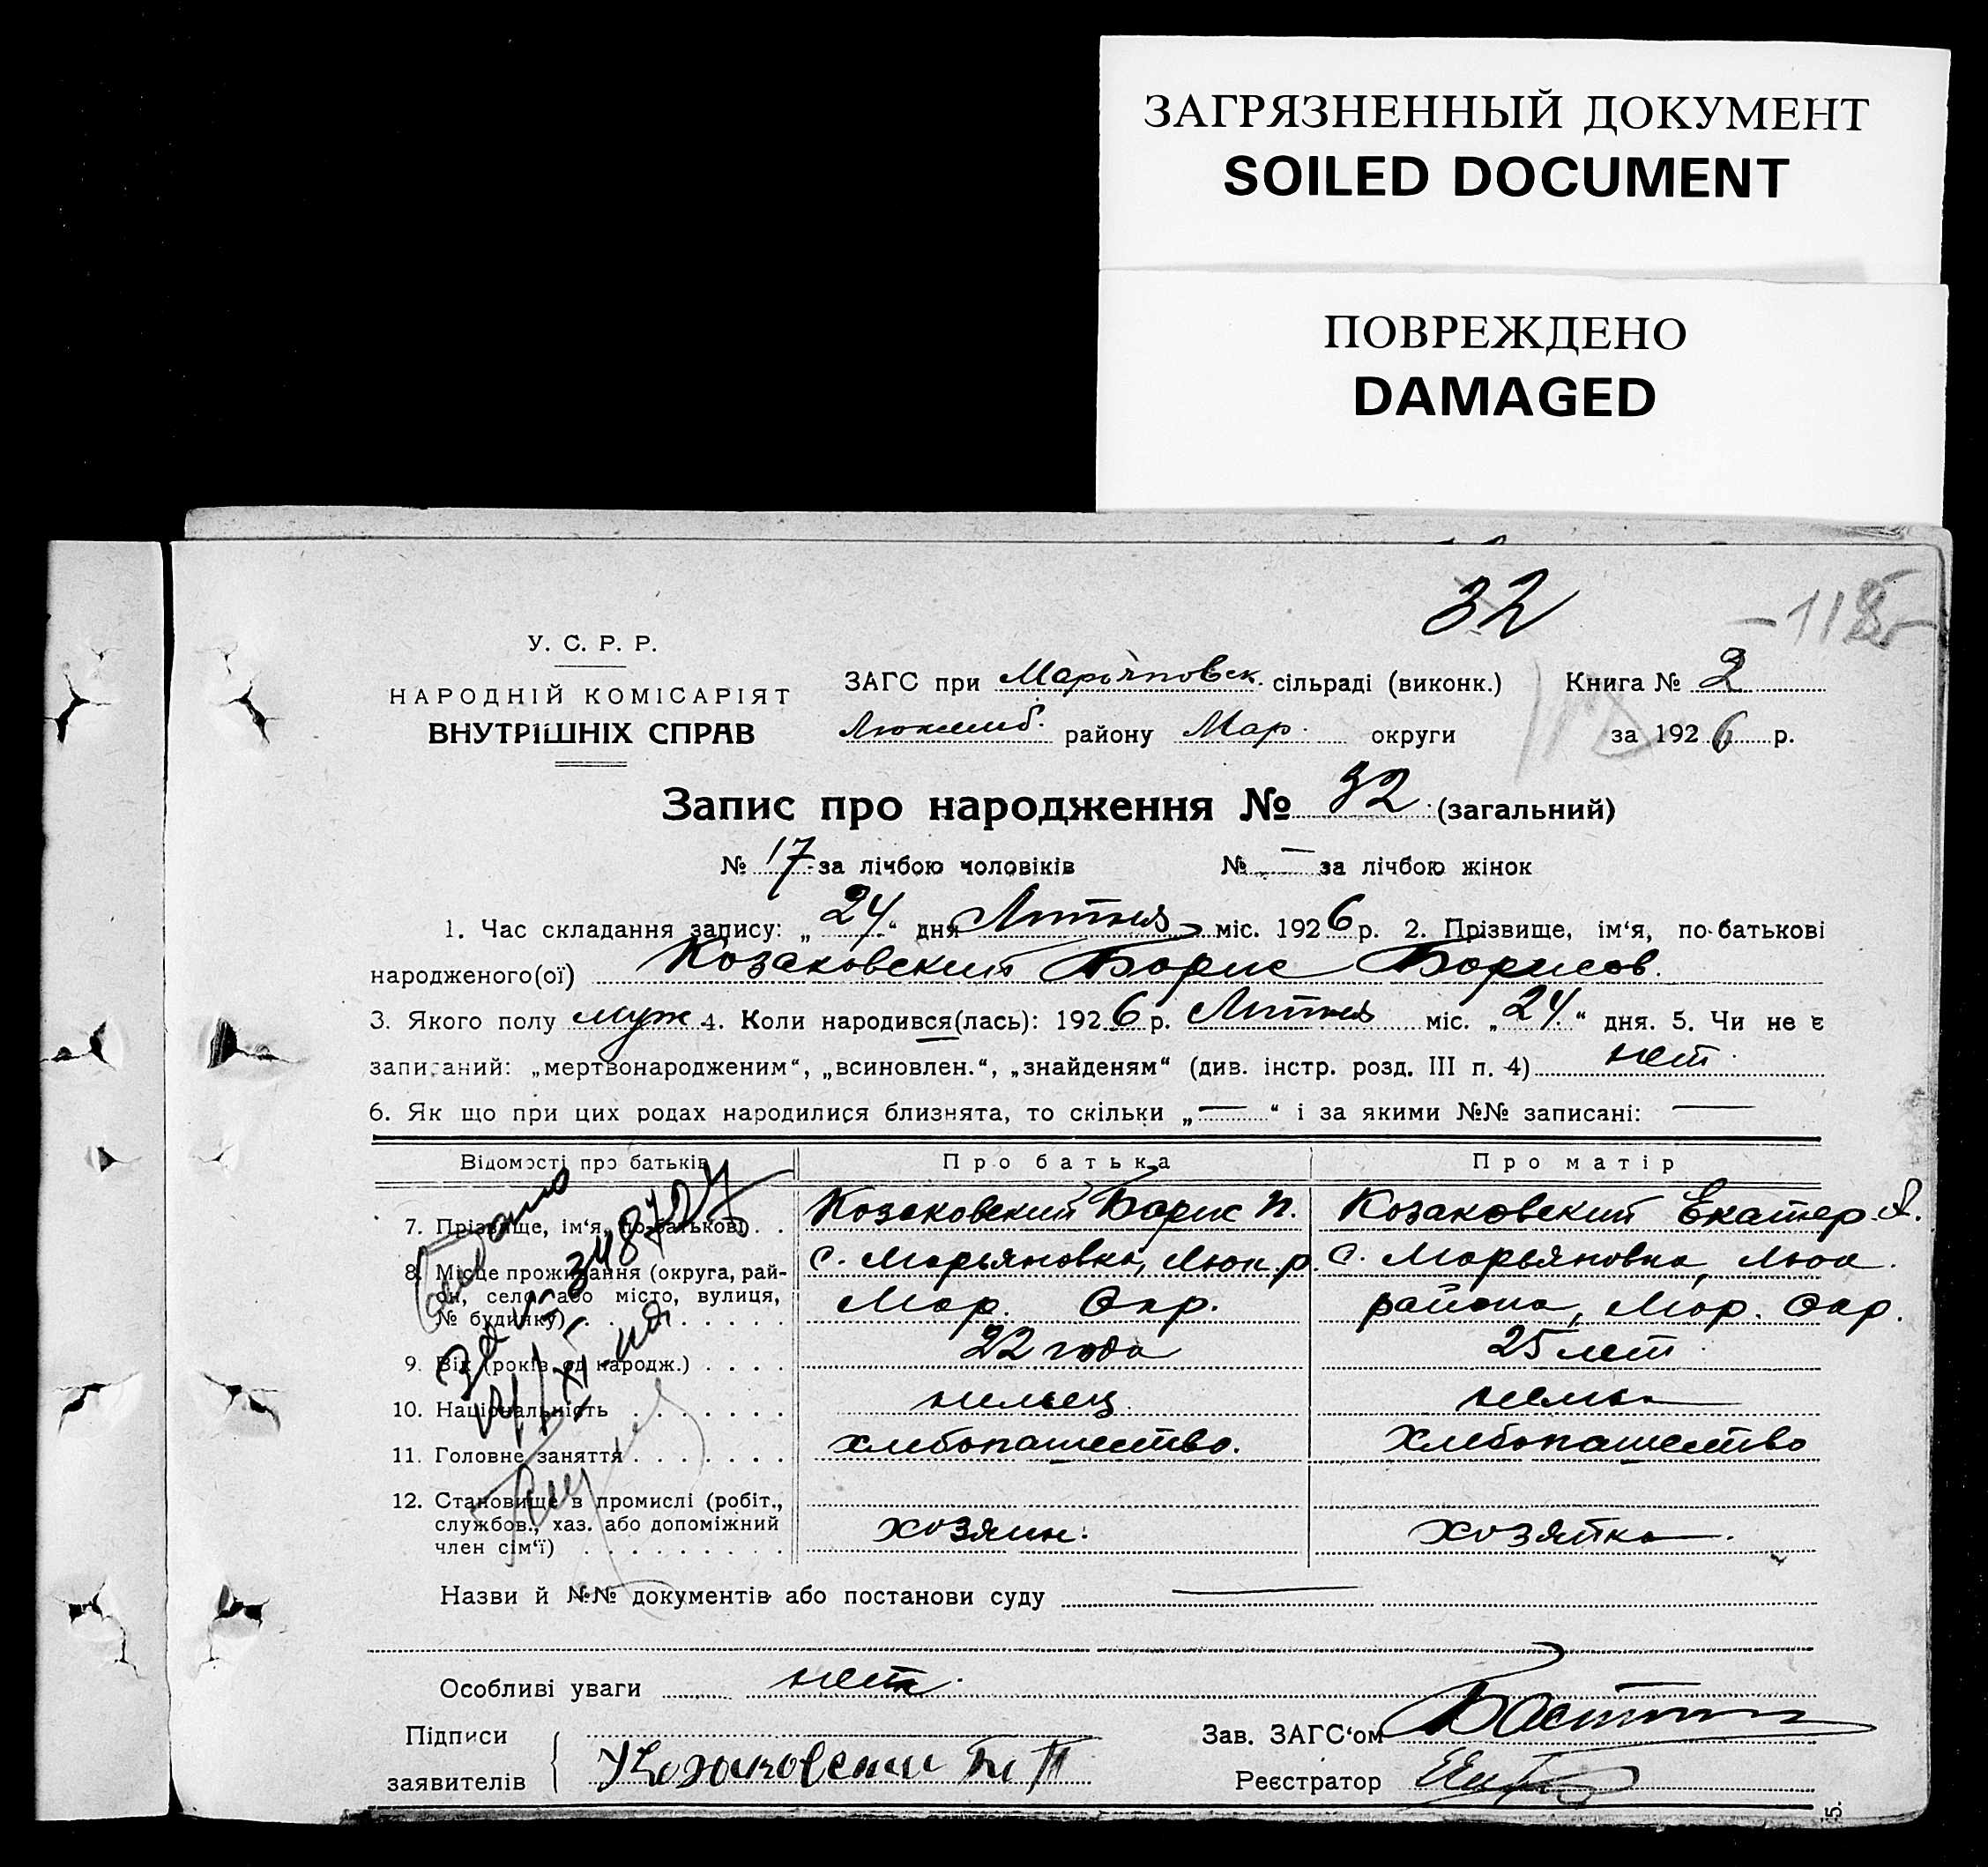 ЗАГРЯЗНЕННЫЙ ДОКУМЕНТ
SOILED DOCUMENT
ПОВРЕЖДЕНО
DAMAGED
32
У. С. Р. Р.
НАРОДНІЙ КОМІСАРІЯТ
ВНУТРІШНІХ СПРАВ
ЗАГС при Марьяновск. сільраді (виконк.) Книга № 2
району Мар. округи за 1926 р.
Запис про народження № 32 (загальний)
№ 17 за лічбою чоловіків № — за лічбою жінок
1. Час складання запису: „24“ дня Лютня міс. 1926 р. 2. Прізвище, ім‘я, по-батькові
народженого(ої) Козаковский Борис Борисов.
3. Якого полу муж 4. Коли народився(лась): 1926 р. Лютня міс. „24“ дня. 5. Чи не є
записаний: „мертвонародженим“, „всиновлен.“, „знайденям“ (див. інстр. розд. III п. 4) нет.
6. Як що при цих родах народилися близнята, то скільки „—“ і за якими №№ записані: —
Відомості про батьків Про батька Про матір
7. Прізвище, ім‘я, по-батькові . . Козаковский Борис П. Козаковский Екатер. А.
8. Місце проживання (округа, рай- с. Марьяновка, Люк. р. с. Марьяновка, Люк.
он, село або місто, вулиця,
№ будинку) Мар. Окр. района, Мар. Окр.
9. Вік (років од народж.) . . . . 22 года 25 лет.
10. Національність немец. немка
11. Головне заняття . . . . . . . хлебопашество. Хлебопашество
12. Становище в промислі (робіт.,
службов., хаз. або допоміжний
член сім‘ї) хозяин. хозяйка.
Назви й №№ документів або постанови суду —
Особливі уваги нет.
Підписи Зав. ЗАГС‘ом
заявителів Козаковский Б. П. Реєстратор